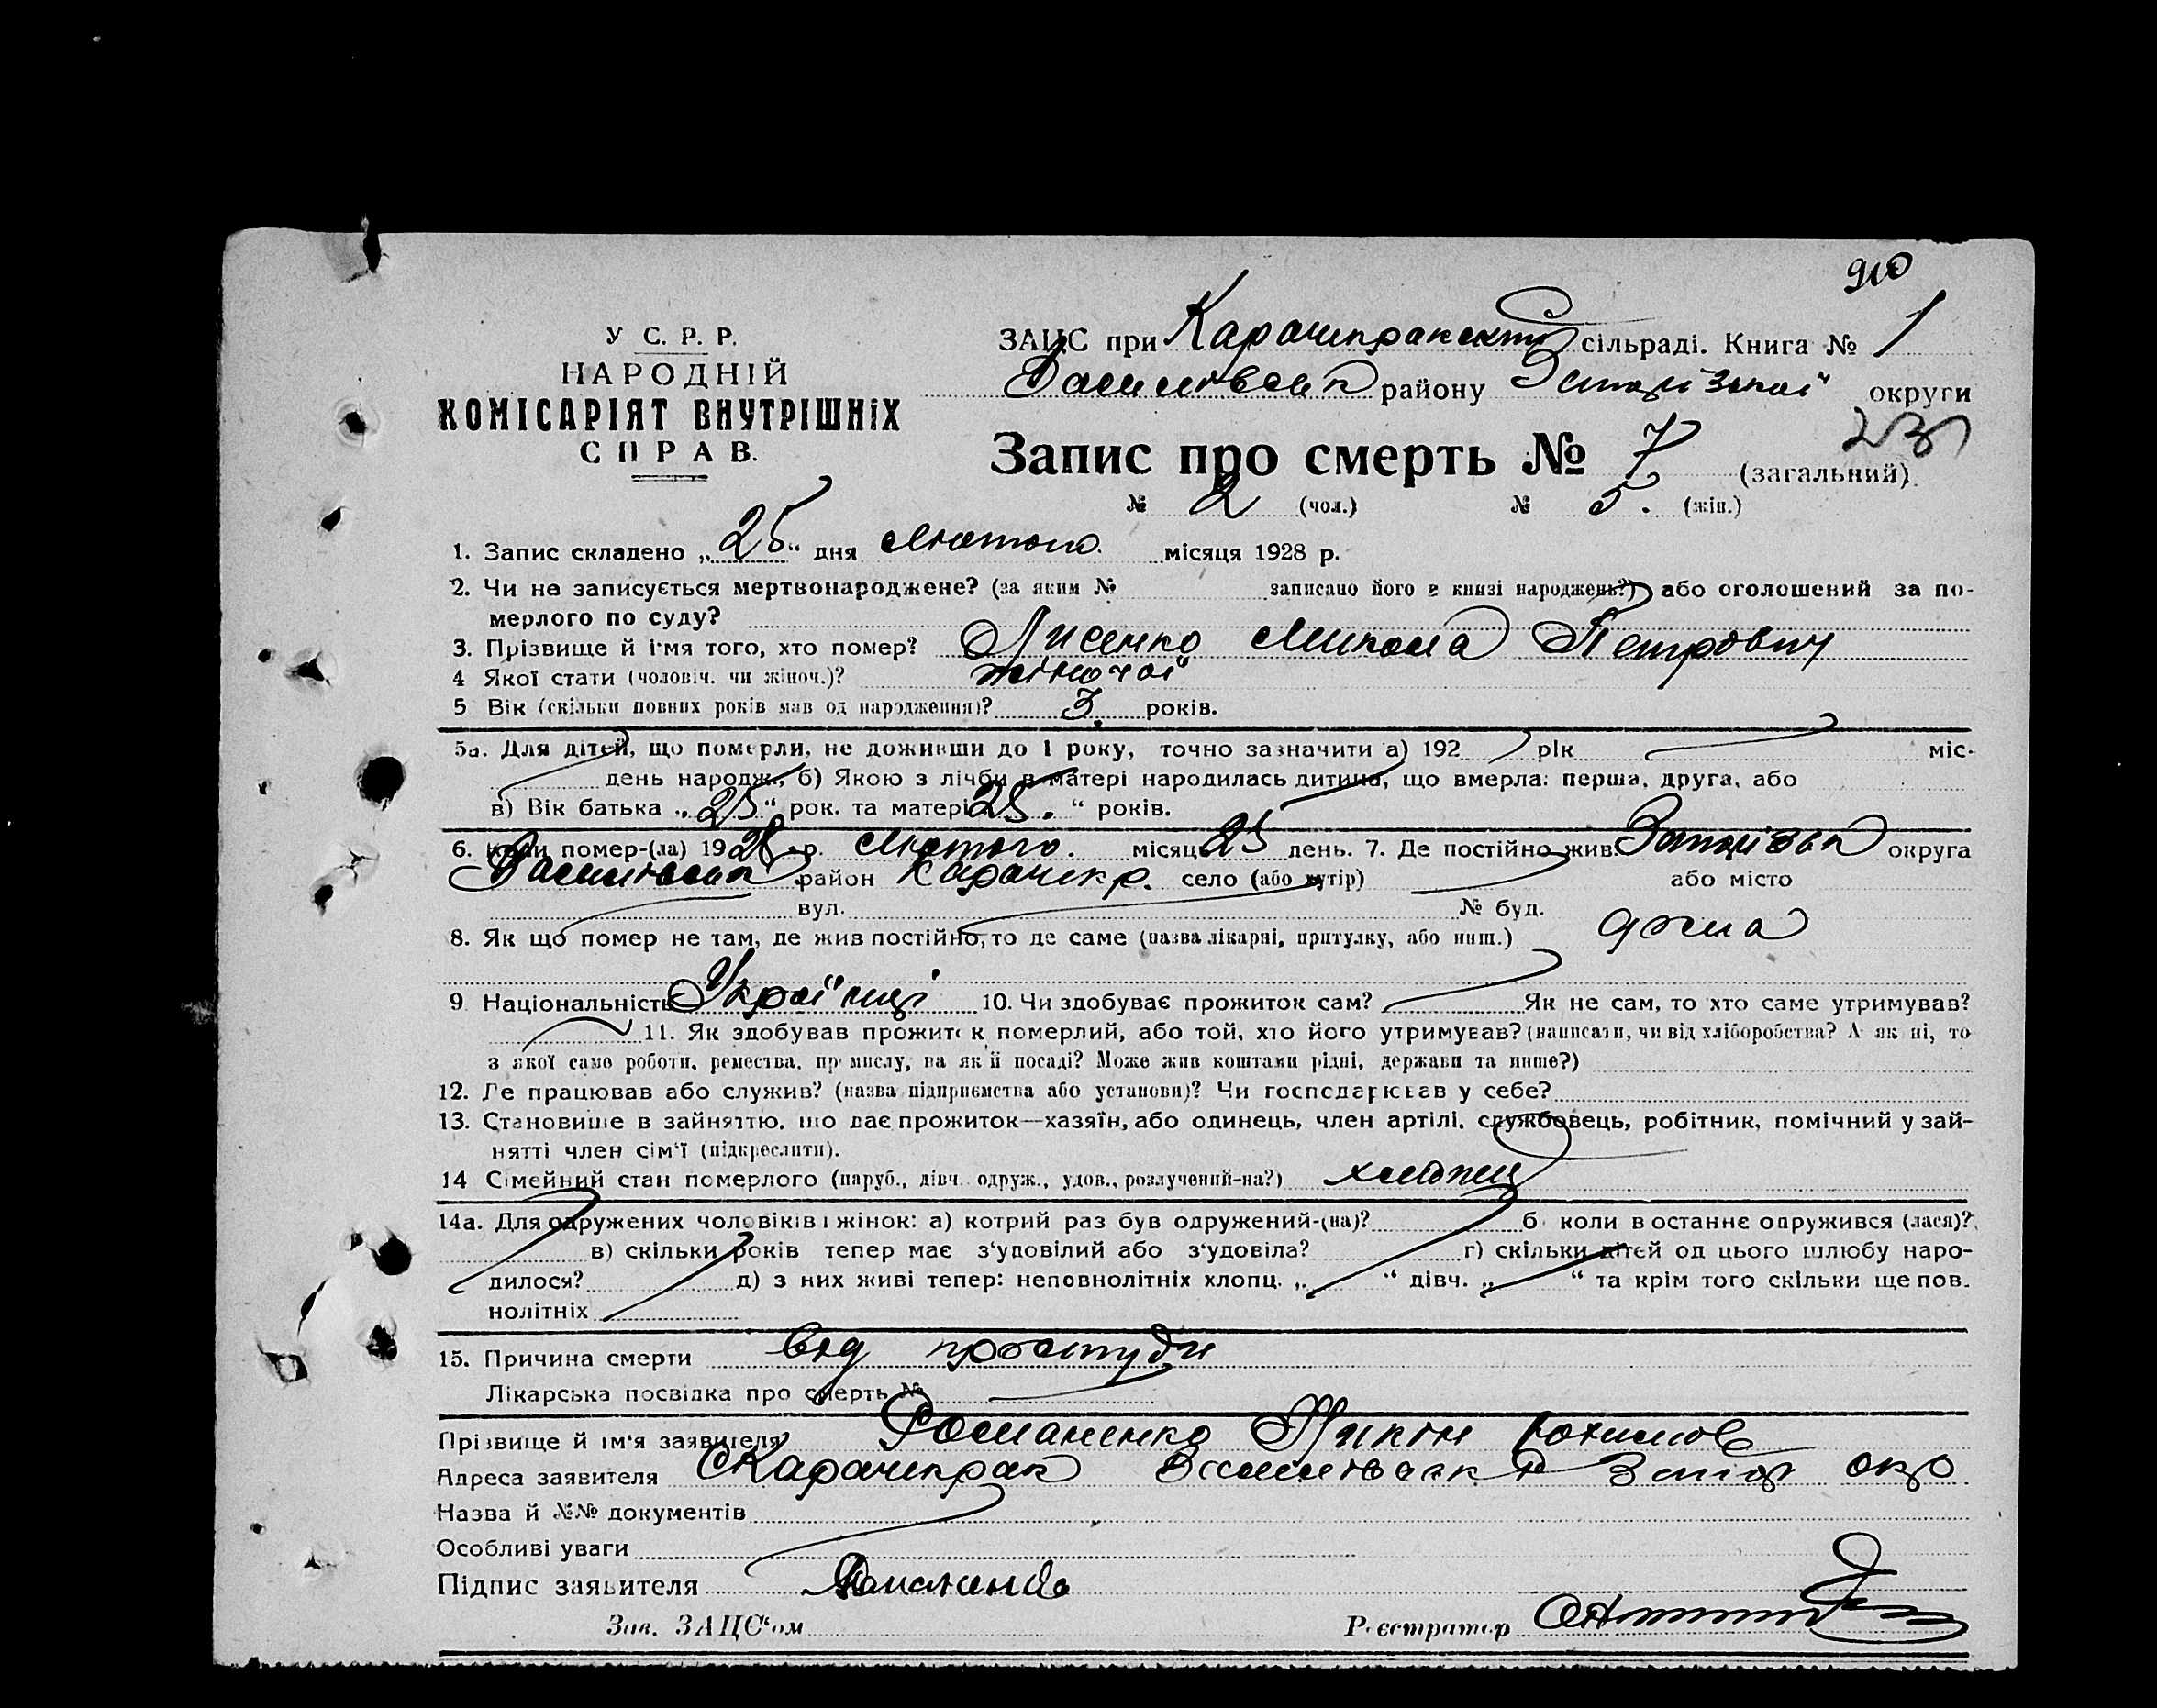 910
У С. Р. Р.
НАРОДНІЙ
КОМІСАРІЯТ ВНУТРІШНІХ
СПРАВ.
ЗАЦС при Карачекракскій сільраді. Книга № 1
Василівськ району Запорізької округи
Запис про смерть № 7 (загальний).
№ 2 (чол.) № 5. (жін.)
1. Запис складено „25“ дня Лютого. місяця 1928 р.
2. Чи не записується мертвонароджене? (за яким № записано його в книзі народжень?) або оголошений за по-
мерлого по суду?
3. Прізвище й ім‘я того, хто помер? Лисенко Микола Петрович
4 Якої стати (чоловіч. чи жіноч.)? жіночої
5 Вік (скільки повних років мав од народження)? 3. років.
5а. Для дітей, що померли, не доживши до 1 року, точно зазначити а) 192 рік міс-
день народж., б) Якою з лічби в матері народилась дитина, що вмерла: перша, друга, або
в) Вік батька „25“ рок. та матері 25. “ років.
6. Коли помер-(ла) 1928 р. Лютого. місяц 25 день. 7. Де постійно жив. Запорізьк округа
Василівськ район Карачекр. село (або хутір) або місто
вул. № буд.
8. Як що помер не там, де жив постійно, то де саме (назва лікарні, притулку, або инш.) дома
9 Національність Українці 10. Чи здобуває прожиток сам? Як не сам, то хто саме утримував?
11. Як здобував прожиток померлий, або той, хто його утримував? (написати, чи від хліборобства? А як ні, то
з якої само роботи, ремества, промислу, на якій посаді? Може жив коштами рідні, держави та инше?)
12. Де працював або служив? (назва підприємства або установи)? Чи господарював у себе?
13. Становище в зайняттю, що дає прожиток—хазяїн, або одинець, член артілі, службовець, робітник, помічний у зай-
нятті член сім‘ї (підкреслити).
14 Сімейний стан померлого (паруб., дівч. одруж., удов., розлучений-на?) хлопец
14а. Для одружених чоловіків і жінок: а) котрий раз був одружений-(на)? б) коли в останнє одружився (лася)?
в) скільки років тепер має з‘удовілий або з‘удовіла? г) скільки дітей од цього шлюбу наро-
дилося? д) з них живі тепер: неповнолітніх хлопц. „ “ дівч. „ “ та крім того скільки ще пов.
нолітніх
15. Причина смерти від простуди
Лікарська посвідка про смерть №
Прізвище й ім‘я заявителя Романенко Никін Юхимов
Адреса заявителя Карачекрак Василівськ р Запор окр
Назва й №№ документів
Особливі уваги
Підпис заявителя Романенко
Зав. ЗАЦС‘ом Реєстратор